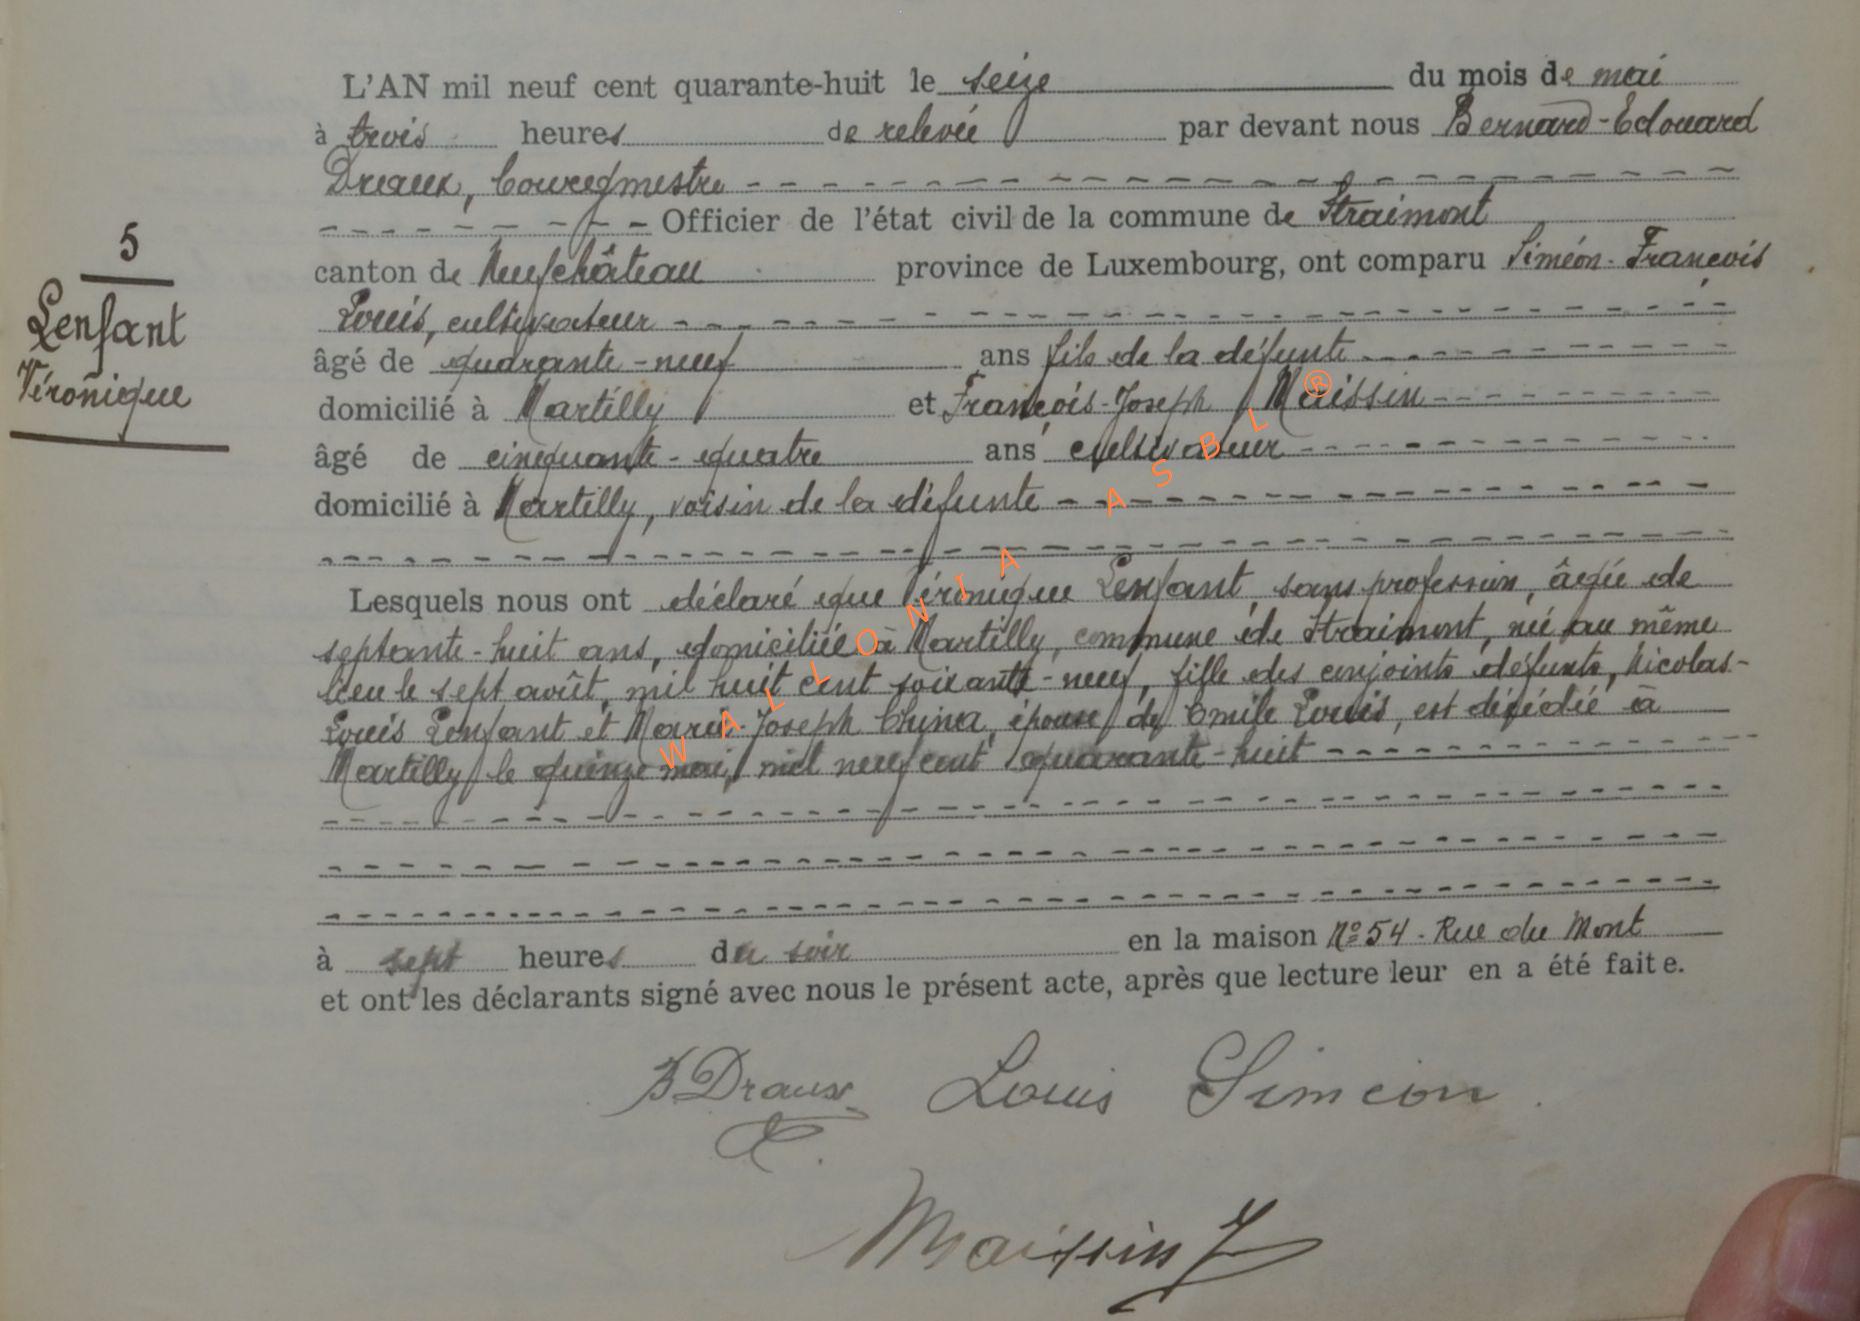 L'AN mil neuf cent quarante-huit le seize du mois de mai
à trois heures de relevée par devant nous Bernard-Edouard
Draux, bourgmestre
Officier de l'état civil de la commune de Straimont
canton de Neufchâteau province de Luxembourg, ont comparu Siméon-François
Louis, cultivateur
âgé de quarante-neuf ans fils de la défunte
domicilié à Martilly et François-Joseph Maissin
âgé de cinquante-quatre ans, cultivateur
domicilié à Martilly, voisin de la défunte
Lesquels nous ont déclaré que Véronique Lenfant, sans profession, âgée de
septante-huit ans, domiciliée à Martilly, commune de Straimont, née au même
lieu le sept août, mil huit cent soixante-neuf, fille des conjoints défunts, Nicolas-
Louis Lenfant et Marie-Joseph China, épouse de Emile Louis, est décédée à
Martilly le quinze mai, mil neuf cent quarante-huit
à sept heures du soir en la maison N° 54 - Rue du Mont
et ont les déclarants signé avec nous le présent acte, après que lecture leur en a été faite.
5
Lenfant
Véronique
B Draux Louis Siméon
Maissin J
WALLONIA ASBL ®